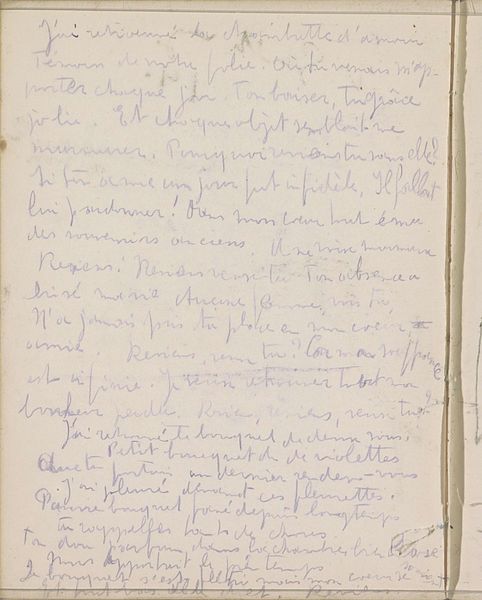 J'ai retrouvé la chambrette d'amour
Témoin de notre folie. Où tu venais m'ap-
porter chaque jour. Ton baiser, ta grâce
jolie. Et chaque objet semblait me
murmurer. Pourquoi reviens tu sans elle?
Si ton amie un jour fut infidèle, Il fallait
lui pardonner! Dans mon cœur tout ému
des souvenirs anciens. Une voix murmure
Reviens! Reviens veux tu Ton absence a
brisé ma vie Aucune femme, vois tu
N'a jamais pris ta place en mon cœur,
amie. Reviens, veux tu? Car ma souffrance
est infinie. Je veux retrouver tout mon
bonheur perdu. Reviens, reviens, veux tu?
J'ai retrouvé le bouquet de deux sous.
Petit bouquet de violettes
Que tu portais au dernier rendez-vous
j'ai pleuré devant ces fleurettes.
Pauvre bouquet fané depuis longtemps
tu rappelles tant de choses
Ton doux parfum dans la chambre close
nous apportait le printemps
Le bouquet s'est flétri mais mon cœur